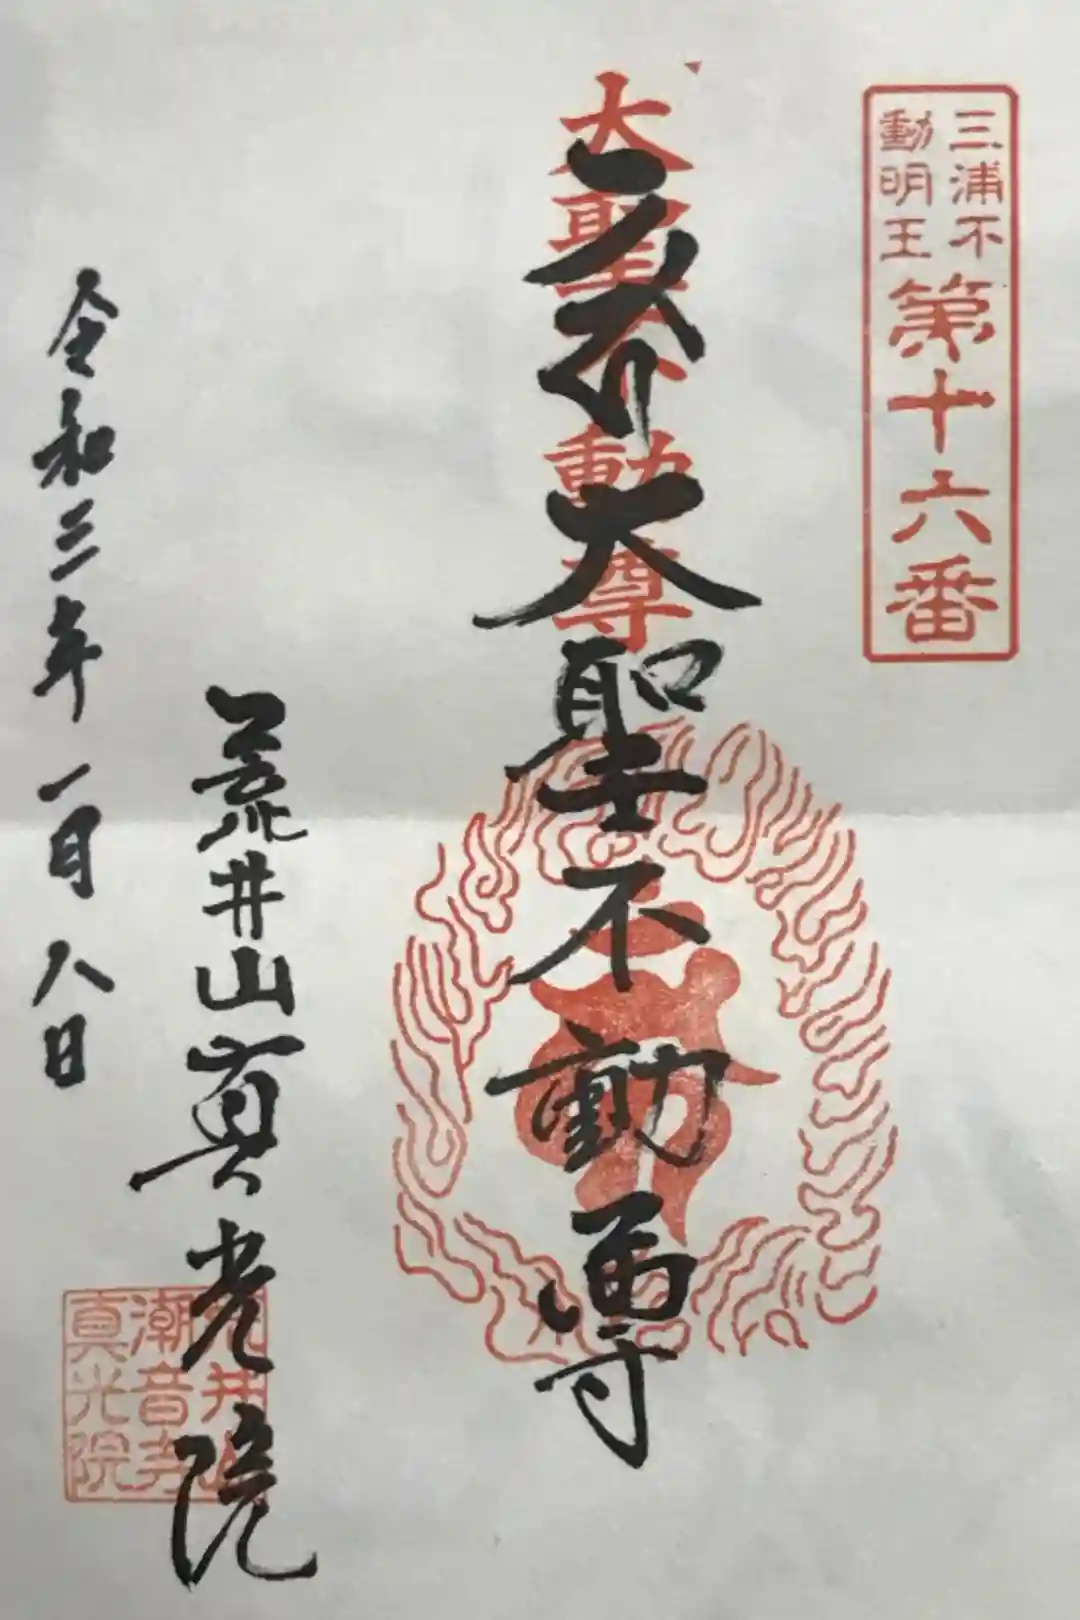 三浦不
動明王
第十六番
大聖不動尊
大聖不動尊
荒井山真光院
荒井山
潮音寺
真光院
令和三年一月八日